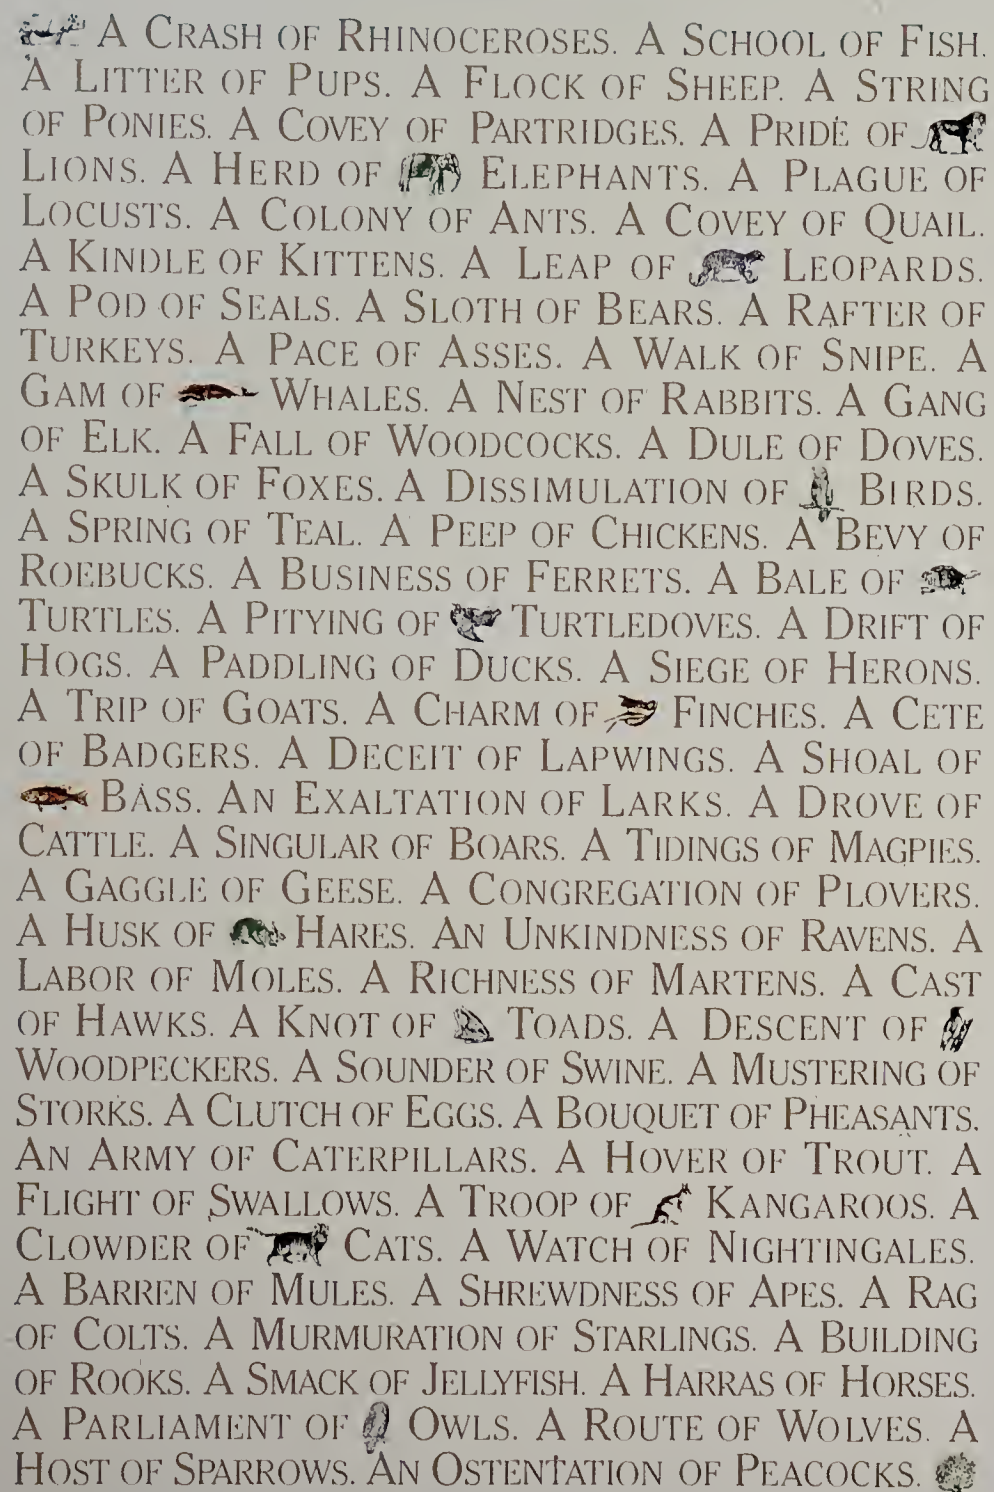 A CRASH OF RHINOCEROSES. A SCHOOL OF FISH.
A LITTER OF PUPS. A FLOCK OF SHEEP. A STRING
OF PONIES. A COVEY OF PARTRIDGES. A PRIDE OF
LIONS. A HERD OF ELEPHANTS. A PLAGUE OF
LOCUSTS. A COLONY OF ANTS. A COVEY OF QUAIL.
A KINDLE OF KITTENS. A LEAP OF LEOPARDS.
A POD OF SEALS. A SLOTH OF BEARS. A RAFTER OF
TURKEYS. A PACE OF ASSES. A WALK OF SNIPE. A
GAM OF WHALES. A NEST OF RABBITS. A GANG
OF ELK. A FALL OF WOODCOCKS. A DULE OF DOVES.
A SKULK OF FOXES. A DISSIMULATION OF BIRDS.
A SPRING OF TEAL. A PEEP OF CHICKENS. A BEVY OF
ROEBUCKS. A BUSINESS OF FERRETS. A BALE OF
TURTLES. A PITYING OF TURTLEDOVES. A DRIFT OF
HOGS. A PADDLING OF DUCKS. A SIEGE OF HERONS.
A TRIP OF GOATS. A CHARM OF FINCHES. A CETE
OF BADGERS. A DECEIT OF LAPWINGS. A SHOAL OF
BASS. AN EXALTATION OF LARKS. A DROVE OF
CATTLE. A SINGULAR OF BOARS. A TIDINGS OF MAGPIES.
A GAGGLE OF GEESE. A CONGREGATION OF PLOVERS.
A HUSK OF HARES. AN UNKINDNESS OF RAVENS. A
LABOR OF MOLES. A RICHNESS OF MARTENS. A CAST
OF HAWKS. A KNOT OF TOADS. A DESCENT OF
WOODPECKERS. A SOUNDER OF SWINE. A MUSTERING OF
STORKS. A CLUTCH OF EGGS. A BOUQUET OF PHEASANTS.
AN ARMY OF CATERPILLARS. A HOVER OF TROUT. A
FLIGHT OF SWALLOWS. A TROOP OF KANGAROOS. A
CLOWDER OF CATS. A WATCH OF NIGHTINGALES.
A BARREN OF MULES. A SHREWDNESS OF APES. A RAG
OF COLTS. A MURMURATION OF STARLINGS. A BUILDING
OF ROOKS. A SMACK OF JELLYFISH. A HARRAS OF HORSES.
A PARLIAMENT OF OWLS. A ROUTE OF WOLVES. A
HOST OF SPARROWS. AN OSTENTATION OF PEACOCKS.